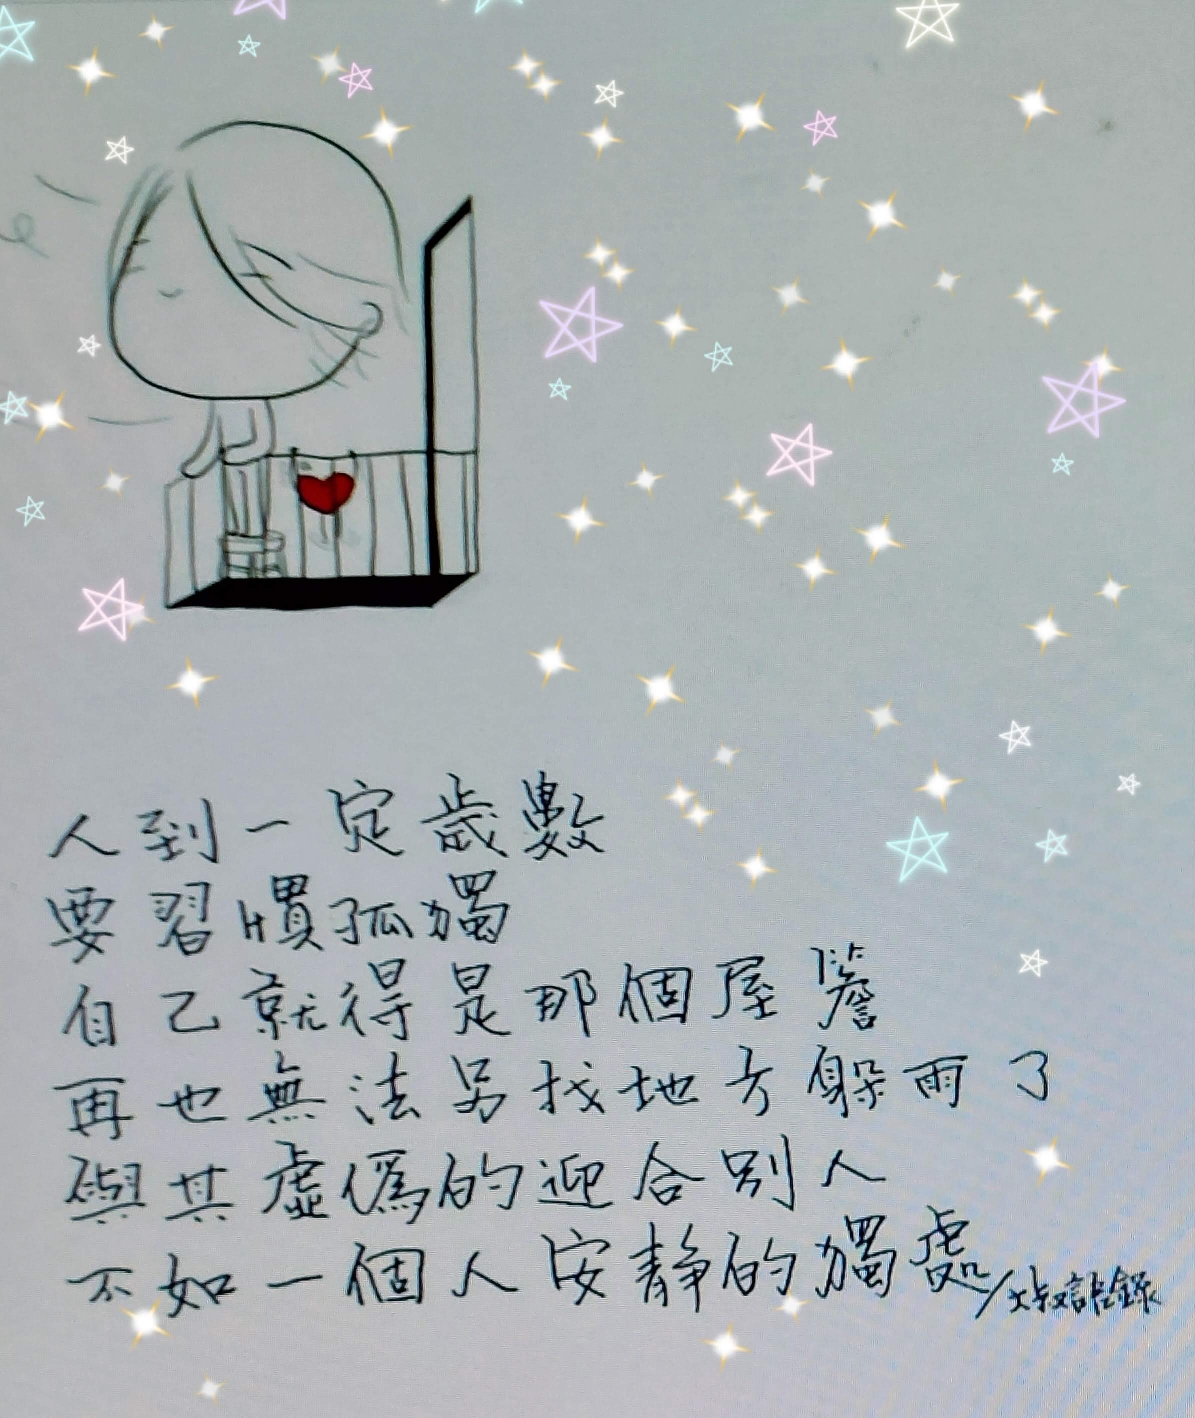 人到一定歲數
要習慣孤獨
自己就得是那個屋簷
再也無法另找地方躲雨了
與其虛偽的迎合別人
不如一個人安靜的獨處/大叔語錄